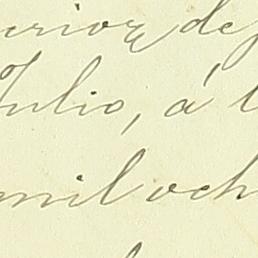 erior de
Julio, á l
mil och